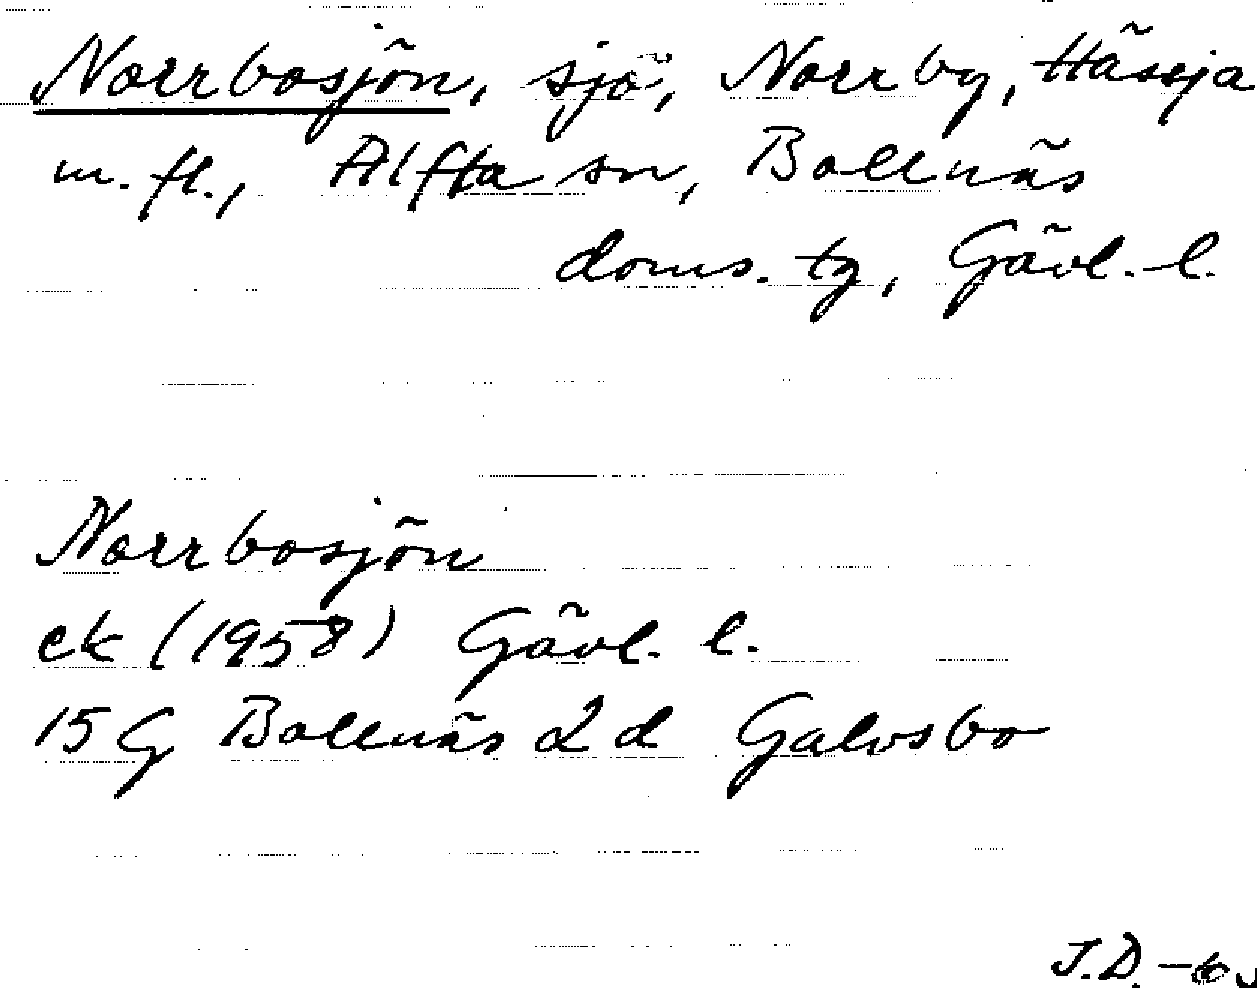 Norrbosjön, sjö, Norrby, Hässja
m. fl., Alfta sn, Bollnäs
doms. tg, Gävl. l.
Norrbosjön
ek (1958) Gävl. l.
15 G Bollnäs 2 d Galvsbo
J.D.